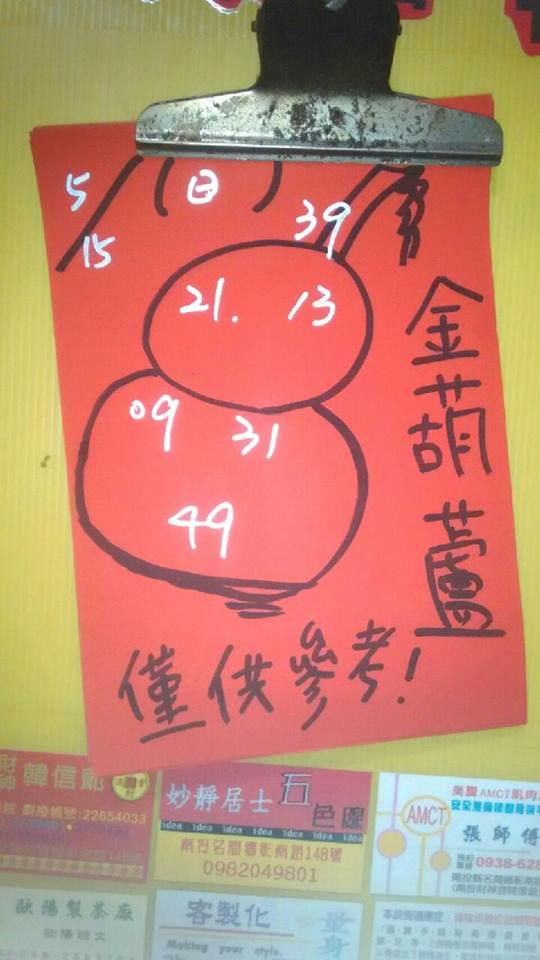 5/15 (日)
39
21. 13
09 31
49
金葫蘆
僅供參考!
韓信爺
劃撥帳號:22654033
妙靜居士 五色線
idea idea idea idea idea idea
南投名間鄉彰南路148號
0982049801
美國AMCT肌肉
AMCT
張師傅
0938-628
南投縣名間鄉彰南
歐陽製茶廠
客製化
Making your style,
量身